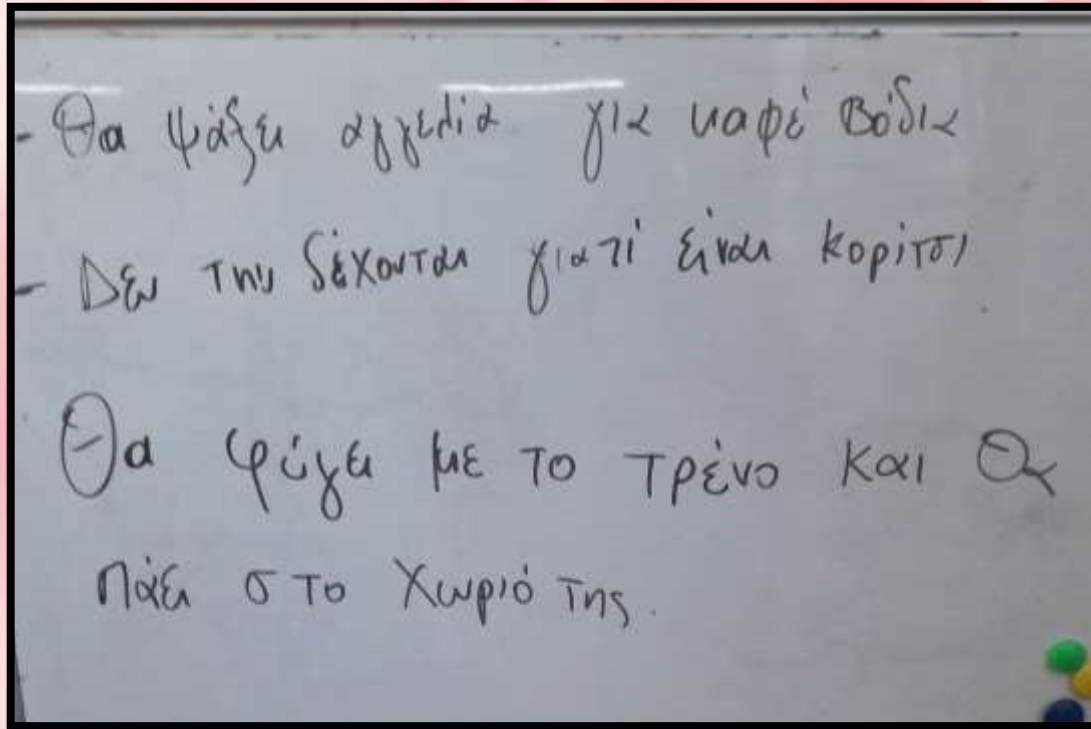 - Θα ψάξει αγγελία για καφέ βόδια
- Δεν την δέχονται γιατί είναι κορίτσι
Θα φύγει με το τρένο και θα
πάει στο χωριό της.